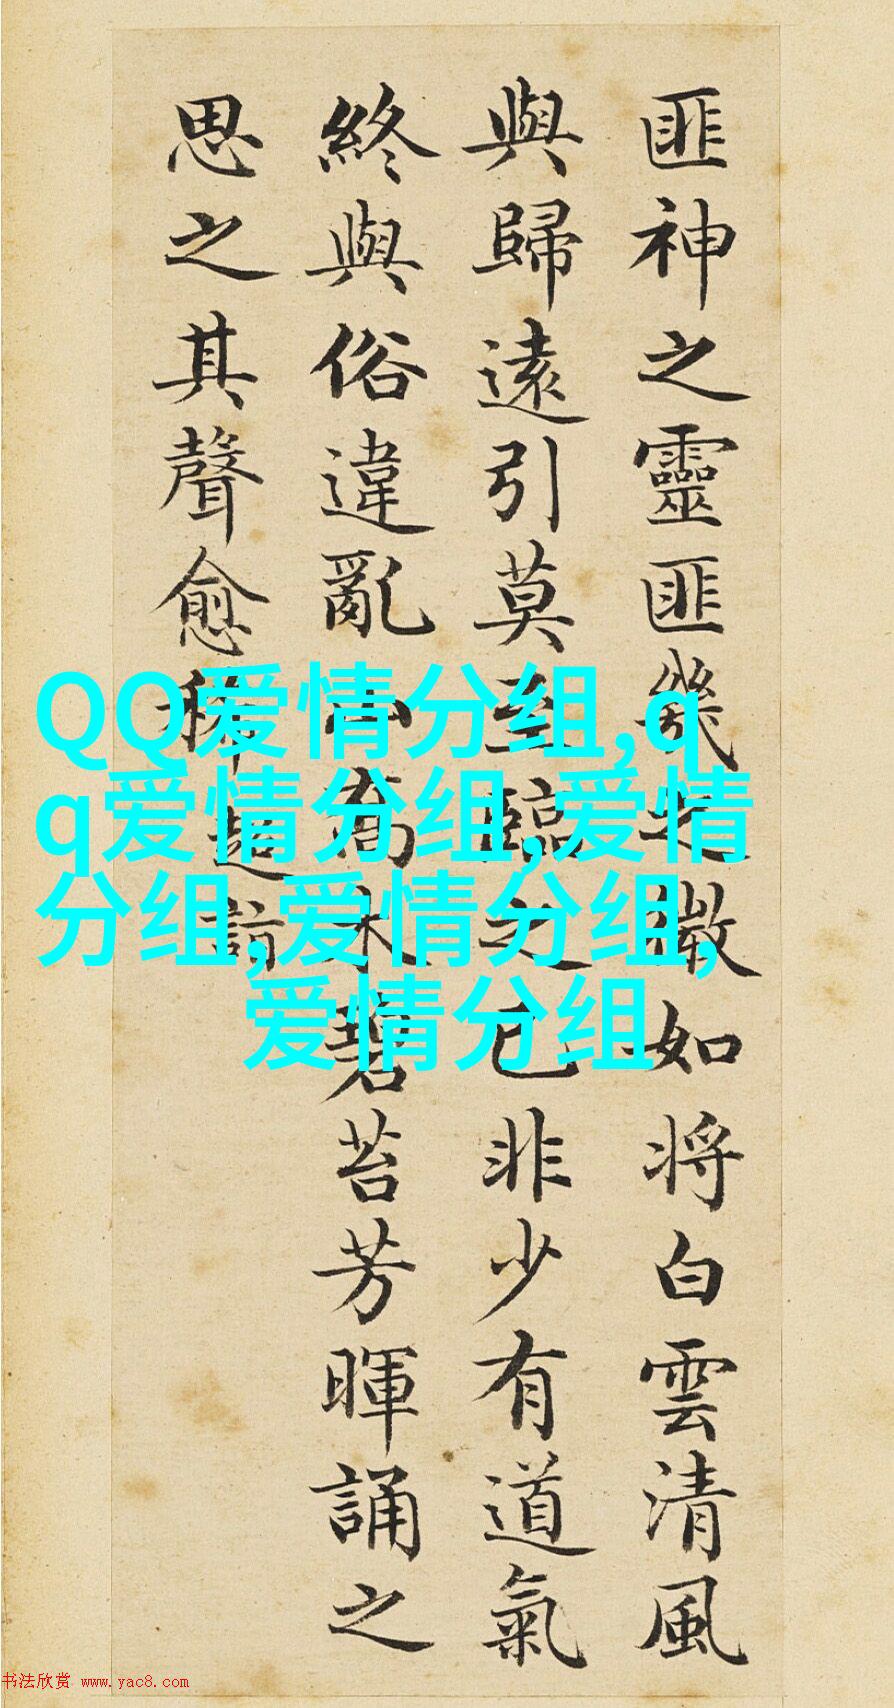 匪神之靈匪幾之微如将白雲清風
與歸遠引莫至臨之已非少有道氣
終與俗違亂山喬木碧苔芳暉誦之
思之其聲愈稀
QQ爱情分组,q
q爱情分组,爱情
分组,爱情分组,
爱情分组
书法欣赏 www.yac8.com